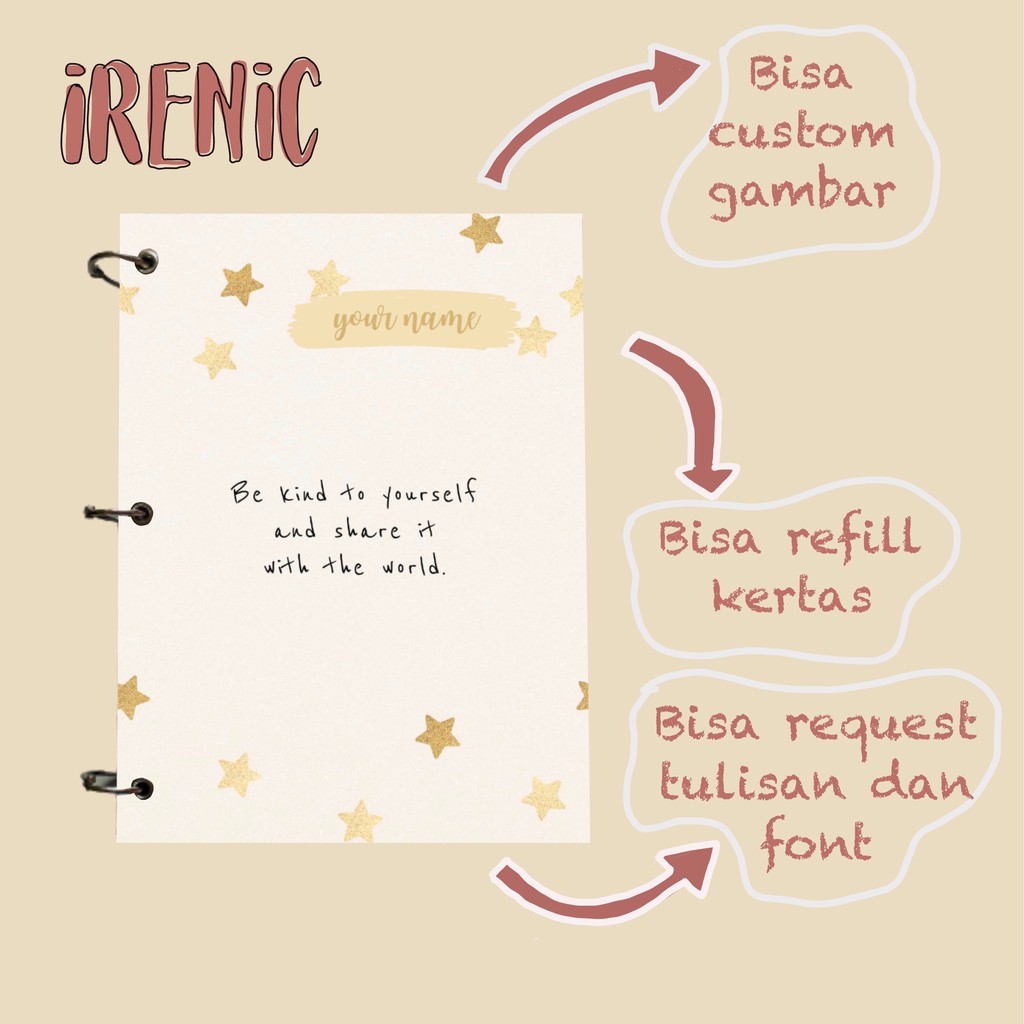 iRENiC
Bisa
custom
gambar
your name
Be kind to yourself
and share it
with the world.
Bisa refill
kertas
Bisa request
tulisan dan
font